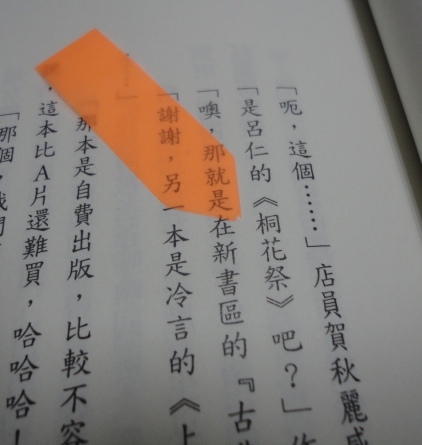 「呃，這個……」店員賀秋麗
「是呂仁的《桐花祭》吧？」
「噢，那就是在新書區的『古
「謝謝，另一本是冷言的《上
……」
「那本是自費出版，比較不容
，這本比A片還難買，哈哈哈！
「那個，我們